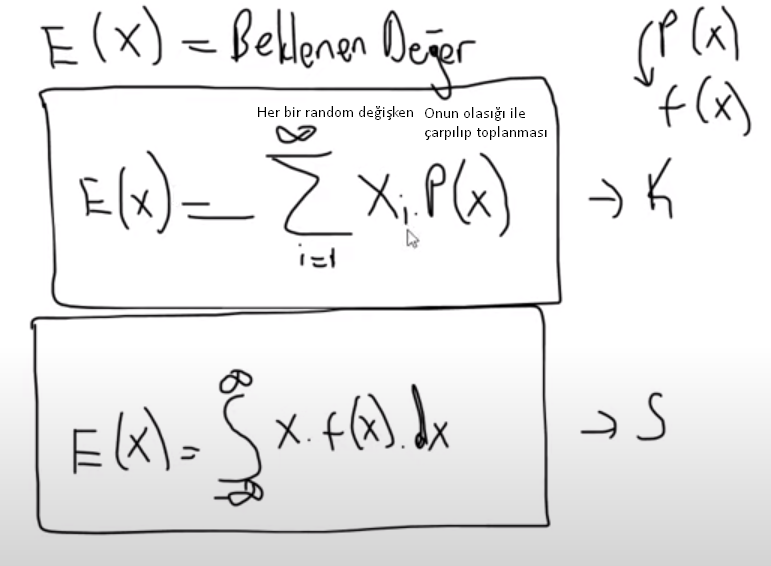 E(X) = Beklenen Değer
P(x)
f(x)
Her bir random değişken
Onun olasığı ile
çarpılıp toplanması
E(x) = ∞ Σ i=1 Xi . P(x) → K
E(x) = ∞ ∫ -∞ x . f(x) . dx → S